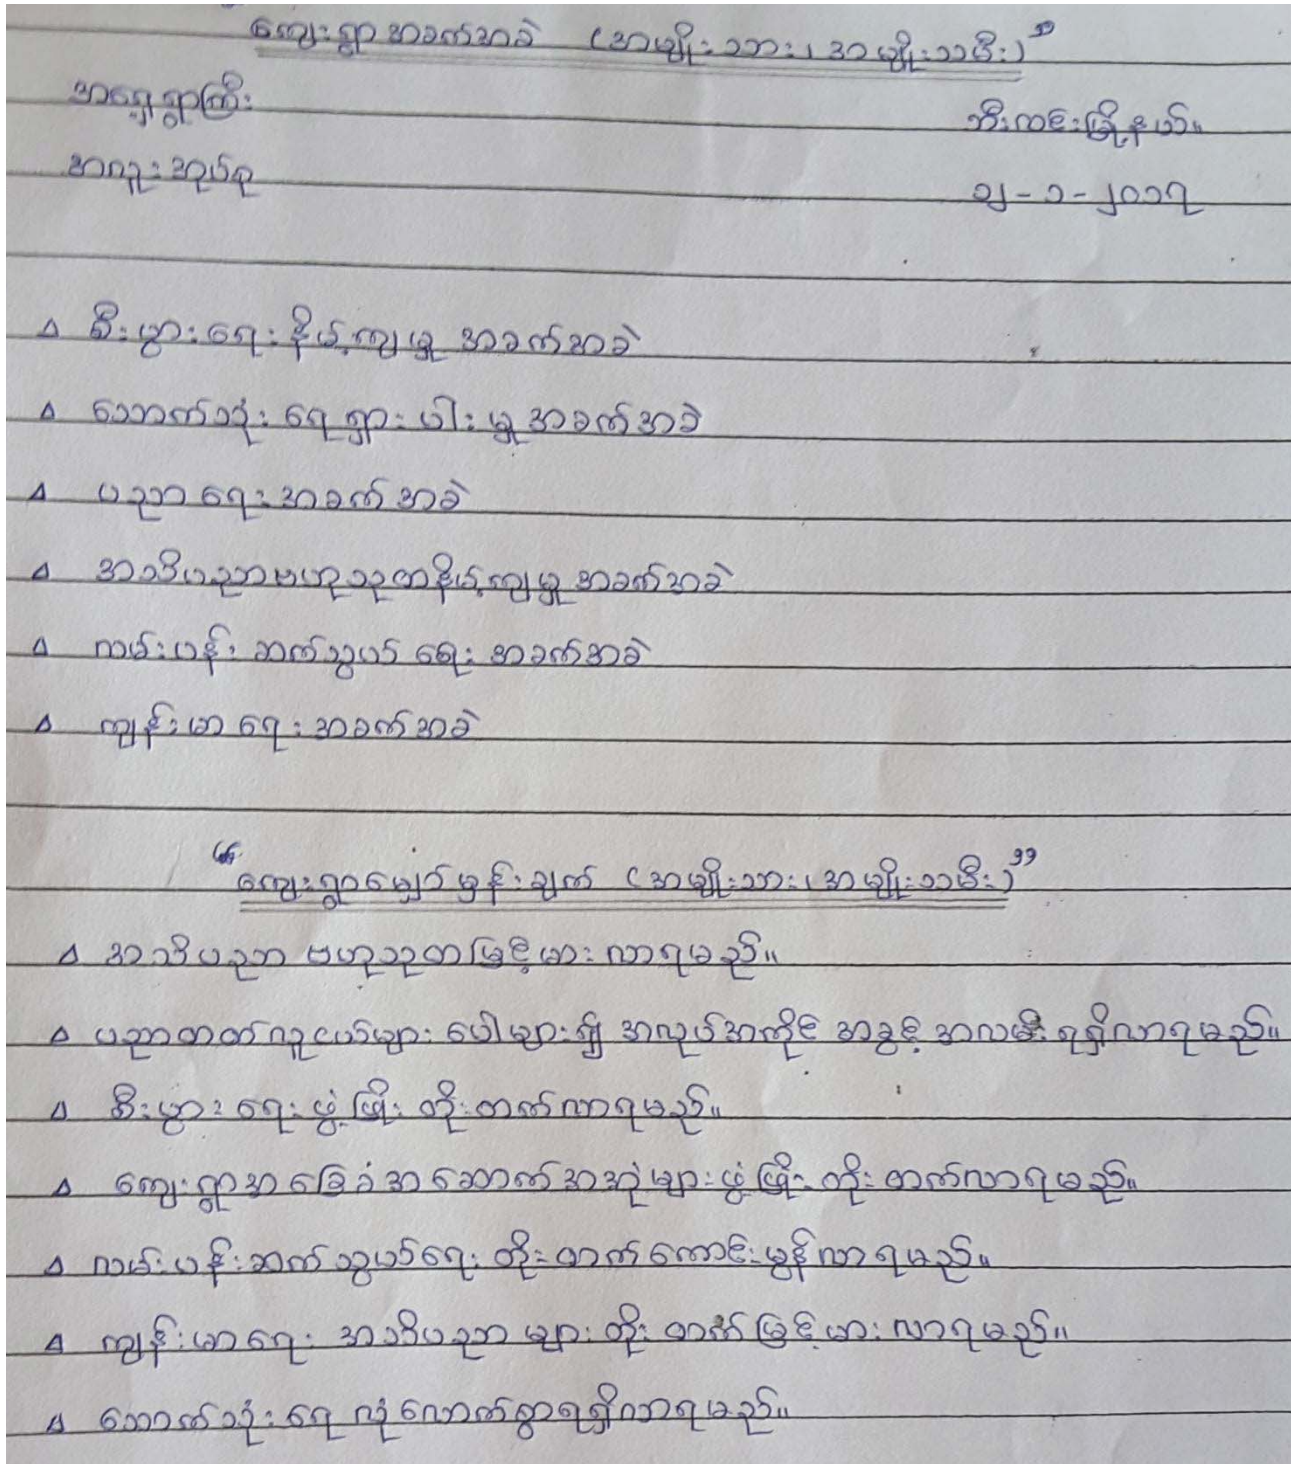 ကျေးရွာအခက်အခဲ (အမျိုးသား၊ အမျိုးသမီး)"
အရှေ့ရွာကြီး
ဘီးလင်းမြို့နယ်။
အလူးအုပ်စု
၁၂-၁-၂၀၁၇
∆ စီးပွားရေးနိမ့်ကျမှု အခက်အခဲ
∆ သောက်သုံးရေရှားပါးမှုအခက်အခဲ
∆ ပညာရေးအခက်အခဲ
∆ အသိပညာဗဟုသုတနိမ့်ကျမှု အခက်အခဲ
∆ လမ်းပန်းဆက်သွယ်ရေးအခက်အခဲ
∆ ကျန်းမာရေးအခက်အခဲ
"ကျေးရွာမျှော်မှန်းချက် (အမျိုးသား၊ အမျိုးသမီး)"
∆ အသိပညာ ဗဟုသုတမြင့်မားလာရမည်။
∆ ပညာတတ်လူငယ်များ ပေါများ၍ အလုပ်အကိုင် အခွင့် အလမ်းရရှိလာရမည်။
∆ စီးပွားရေးဖွံ့ဖြိုးတိုးတက်လာရမည်။
∆ ကျေးရွာအခြေခံအဆောက်အအုံများဖွံ့ဖြိုးတိုးတက်လာရမည်။
∆ လမ်းပန်းဆက်သွယ်ရေး တိုးတက်ကောင်းမွန်လာရမည်။
∆ ကျန်းမာရေး အသိပညာများတိုးတက်မြင့်မားလာရမည်။
∆ သောက်သုံးရေ လုံလောက်စွာရရှိလာရမည်။